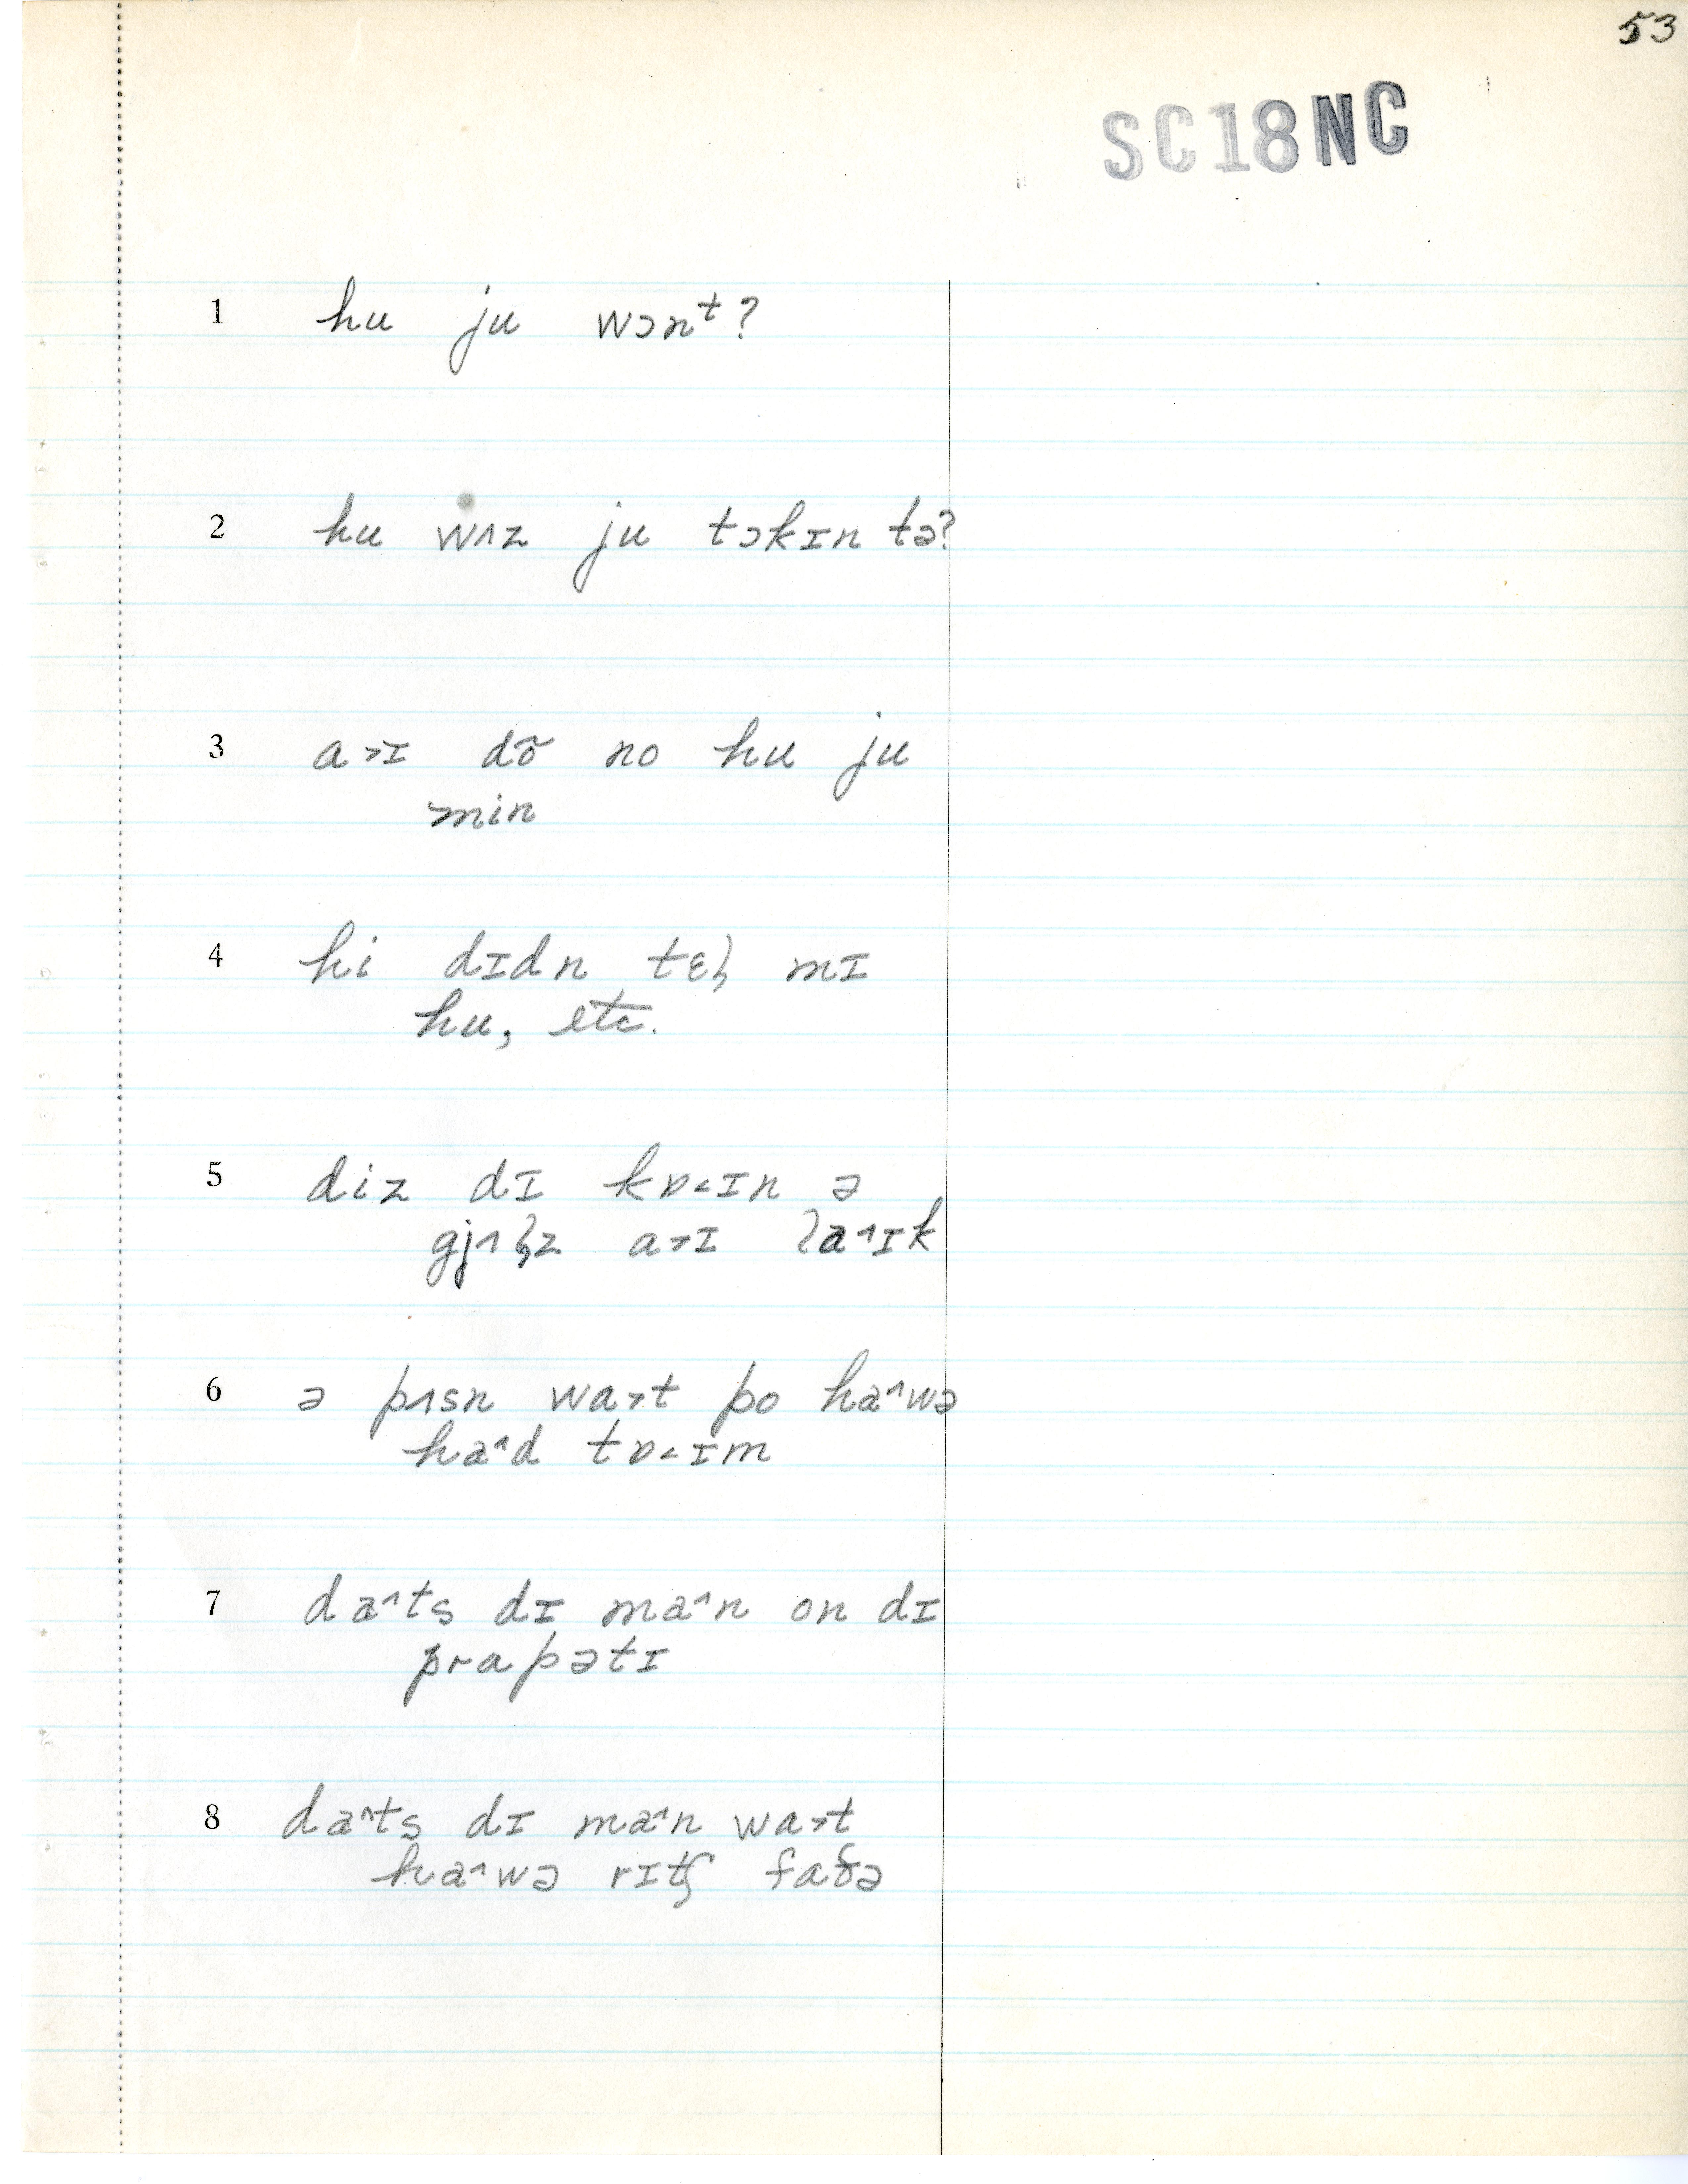 53
SC18NC
1 hu ju wɔnᵗ?
2 hu wʌz ju tɔkɪn tə?
3 a˃ɪ dõ no hu ju
min
4 hi dɪdn tɛl̡ mɪ
hu, etc.
5 diz dɪ kɒ˂ɪn ə
gjʌl̡z a˃ɪ la˄ɪk
6 ə pʌsn wa˃t po ha˄wə
ha˄d tɒ˂ɪm
7 da˄ts dɪ ma˄n on dɪ
prapətɪ
8 da˄ts dɪ ma˄n wa˃t
ha˄wə rɪtʃ faðə